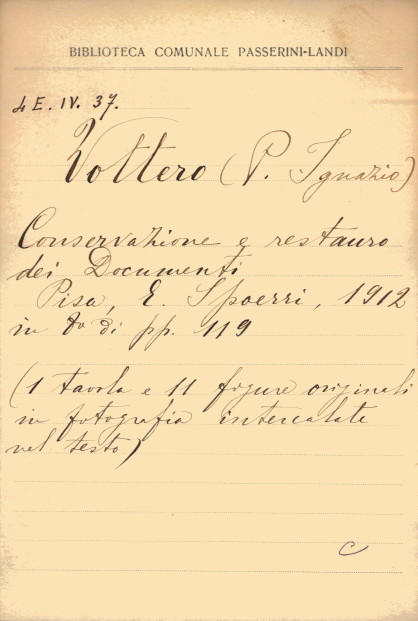 BIBLIOTECA COMUNALE PASSERINI-LANDI
4 E. IV. 37.
Vottero (P. Ignazio)
Conservazione e restauro
dei Documenti
Pisa, E. Spoerri, 1912
in 8º di pp. 119
(1 tavola e 11 figure originali
in fotografia intercalate
nel testo)
C